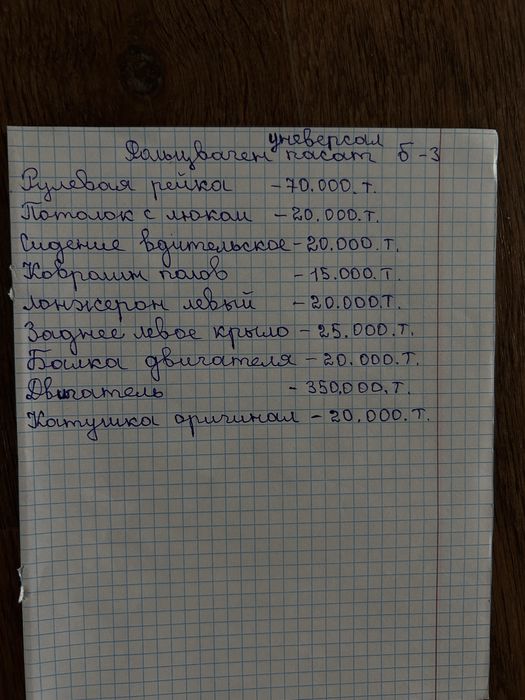 универсал
Фольцваген пасат б-3
Рулевая рейка - 70.000.т.
Потолок с люком - 20.000.т.
Сидение вдительское - 20.000.т.
Ковролин полов - 15.000.т.
лонжерон левый - 20.000.т.
Заднее левое крыло - 25.000.т.
Балка двигателя - 20.000.т.
Двигатель - 350,000.т.
Катушка оричинал - 20.000.т.